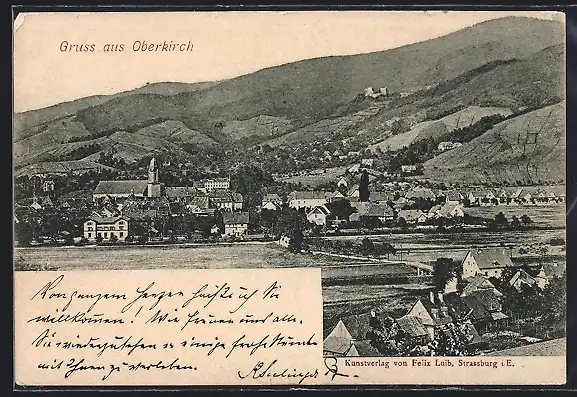 Gruss aus Oberkirch
Von ganzem Herzen heisse ich Sie
willkommen! Wir freuen uns alle,
Sie wiederzusehen u. einige frohe Stunden
mit Ihnen zu verleben.
Kunstverlag von Felix Luib, Strassburg i. E.